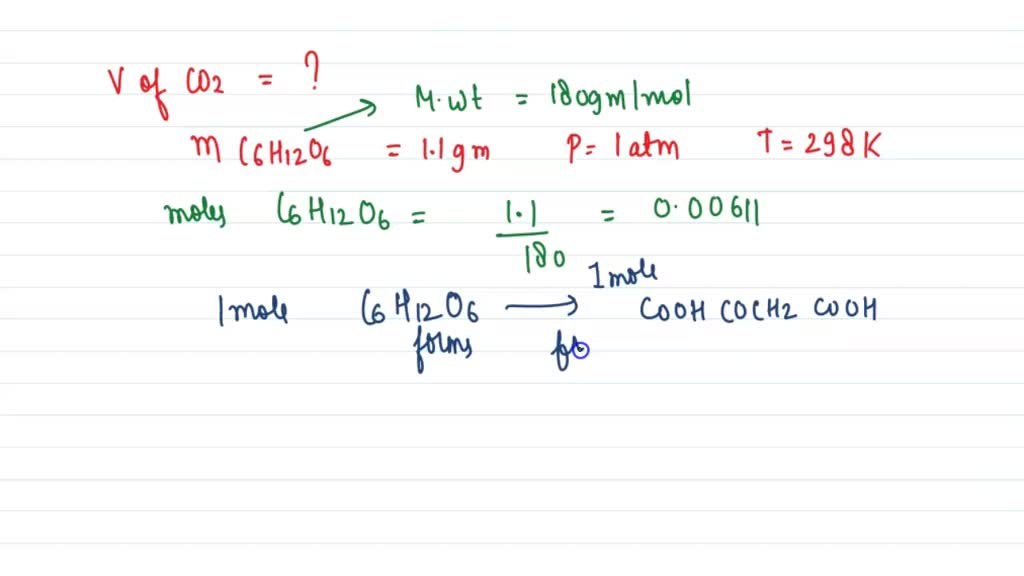 V of CO2 = ?
M.wt = 180gm/mol
m C6H12O6 = 1.1gm P = 1atm T = 298K
moles C6H12O6 = 1.1 / 180 = 0.00611
1 mole
1mole C6H12O6 → COOH COCH2 COOH
forms